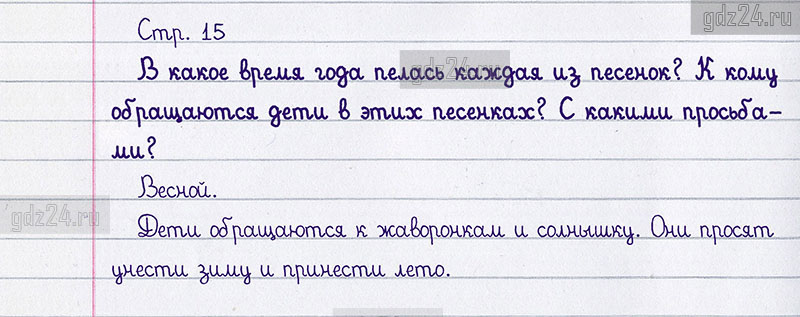 gdz24.ru
Стр. 15
В какое время года пелась каждая из песенок? К кому
gdz24.ru
обращаются дети в этих песенках? С какими просьба-
ми?
Весной.
gdz24.ru
Дети обращаются к жаворонкам и солнышку. Они просят
унести зиму и принести лето.